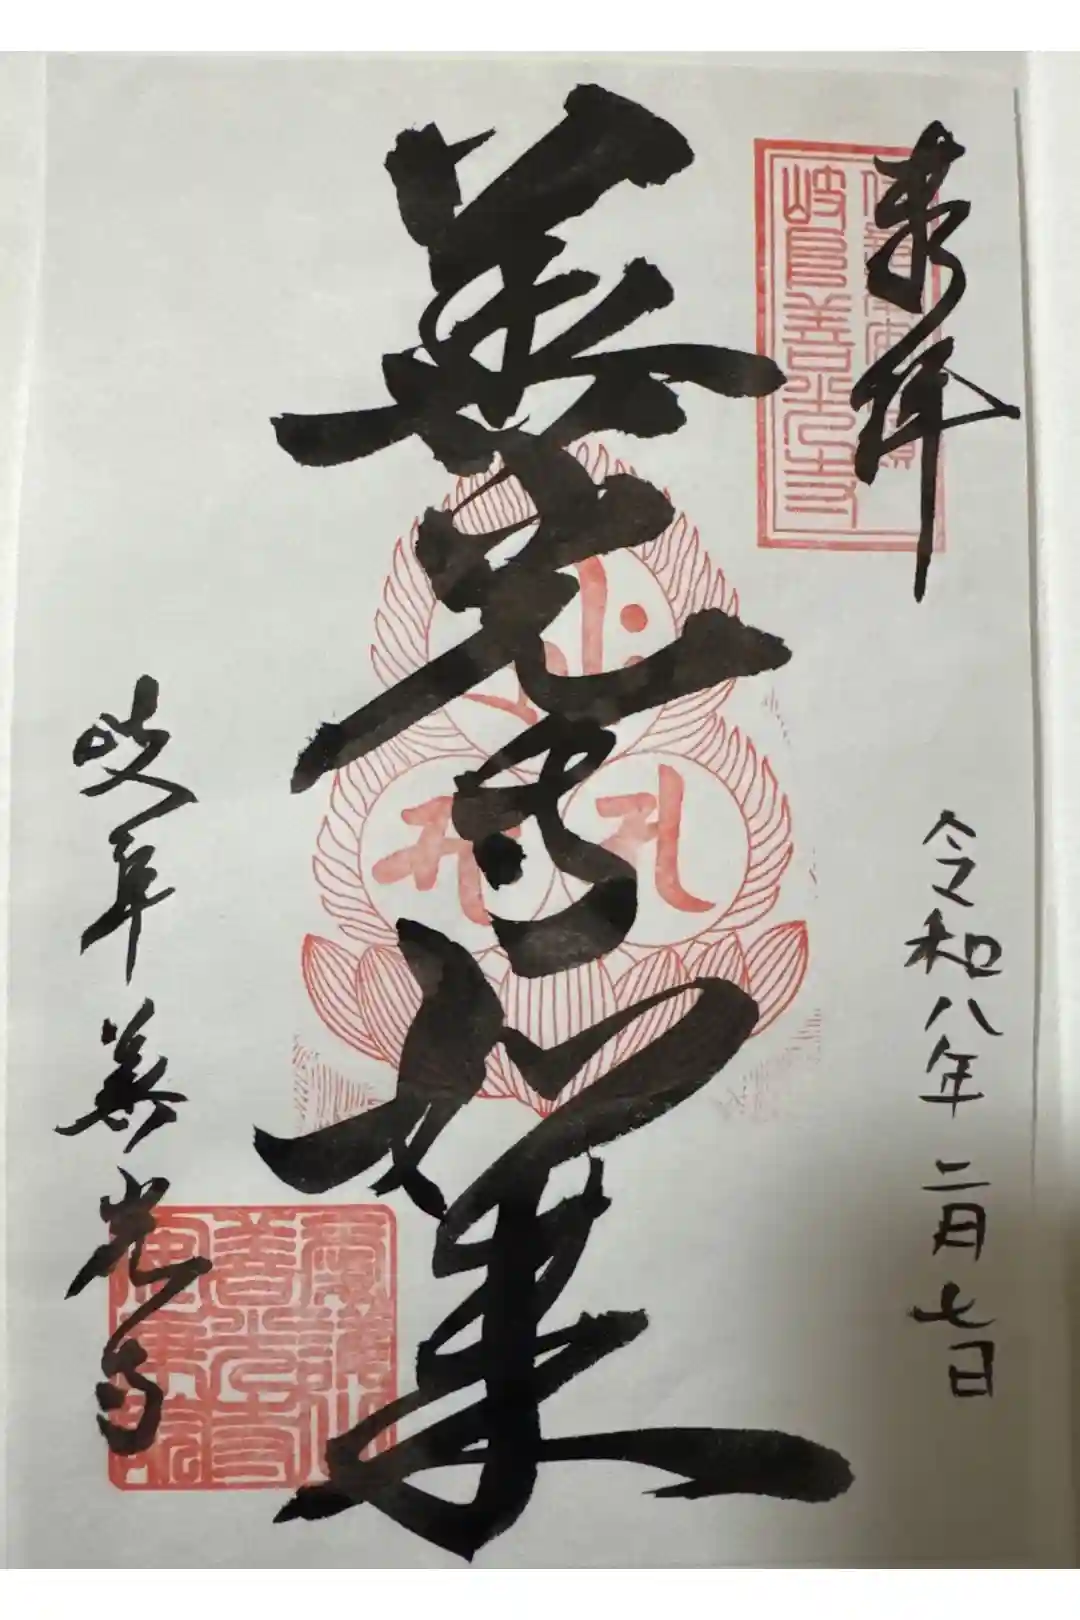 奉拝
岐阜善光寺
令和八年二月七日
善光寺如来
岐阜善光寺
善光寺
安乗院